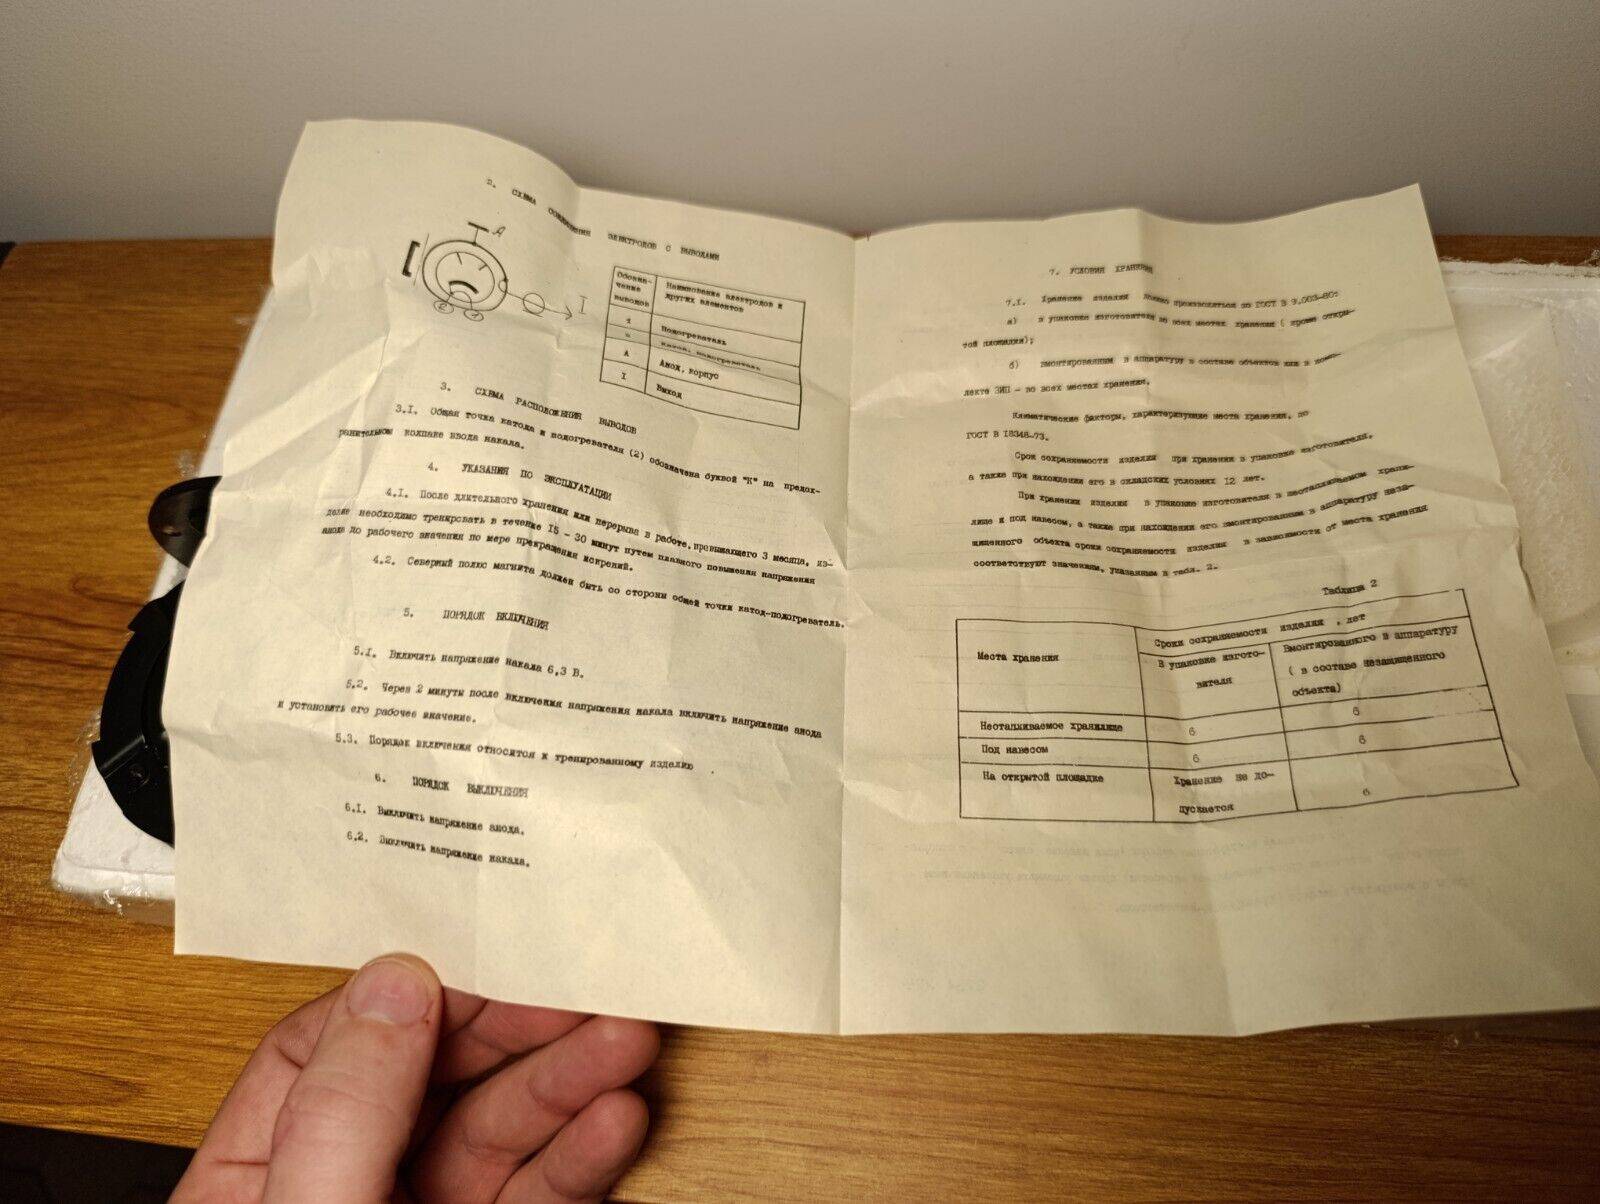 2. СХЕМА СОЕДИНЕНИЯ ЭЛЕКТРОДОВ С ВЫВОДАМИ
А
I
2 1
Обозна- Наименование электродов и
чение других элементов
выводов
1 Подогреватель
2 Катод, подогреватель
А Анод, корпус
I Выход
3. СХЕМА РАСПОЛОЖЕНИЯ ВЫВОДОВ
3.I. Общая точка катода и подогревателя (2) обозначена буквой "К" на предох-
ранительном колпаке ввода накала.
4. УКАЗАНИЯ ПО ЭКСПЛУАТАЦИИ
4.I. После длительного хранения или перерыва в работе, превышающего 3 месяца, из-
делие необходимо тренировать в течение I5 - 30 минут путем плавного повышения напряжения
анода до рабочего значения по мере прекращения искрений.
4.2. Северный полюс магнита должен быть со стороны общей точки катод-подогреватель.
5. ПОРЯДОК ВКЛЮЧЕНИЯ
5.I. Включить напряжение накала 6,3 В.
5.2. Через 2 минуты после включения напряжения накала включить напряжение анода
и установить его рабочее значение.
5.3. Порядок включения относится к тренированному изделию .
6. ПОРЯДОК ВЫКЛЮЧЕНИЯ
6.I. Выключить напряжение анода.
6.2. Выключить напряжение накала.
7. УСЛОВИЯ ХРАНЕНИЯ
7.I. Хранение изделия должно производиться по ГОСТ В 9.003-80:
а) в упаковке изготовителя во всех местах хранения ( кроме откры-
той площадки);
б) вмонтированным в аппаратуру в составе объектов или в комп-
лекте ЗИП - во всех местах хранения.
Климатические факторы, характеризующие места хранения, по
ГОСТ В I8348-73.
Срок сохраняемости изделия при хранении в упаковке изготовителя,
а также при нахождении его в складских условиях 12 лет.
При хранении изделия в упаковке изготовителя в неотапливаемом храни-
лище и под навесом, а также при нахождении его вмонтированным в аппаратуру неза-
щищенного объекта сроки сохраняемости изделия в зависимости от места хранения
соответствуют значениям, указанным в табл. 2.
Таблица 2
Места хранения Сроки сохраняемости изделия , лет
В упаковке изгото- Вмонтированного в аппаратуру
вителя ( в составе незащищенного
объекта)
Неотапливаемое хранилище 6 6
Под навесом 6 6
На открытой площадке Хранение не до-
пускается 6